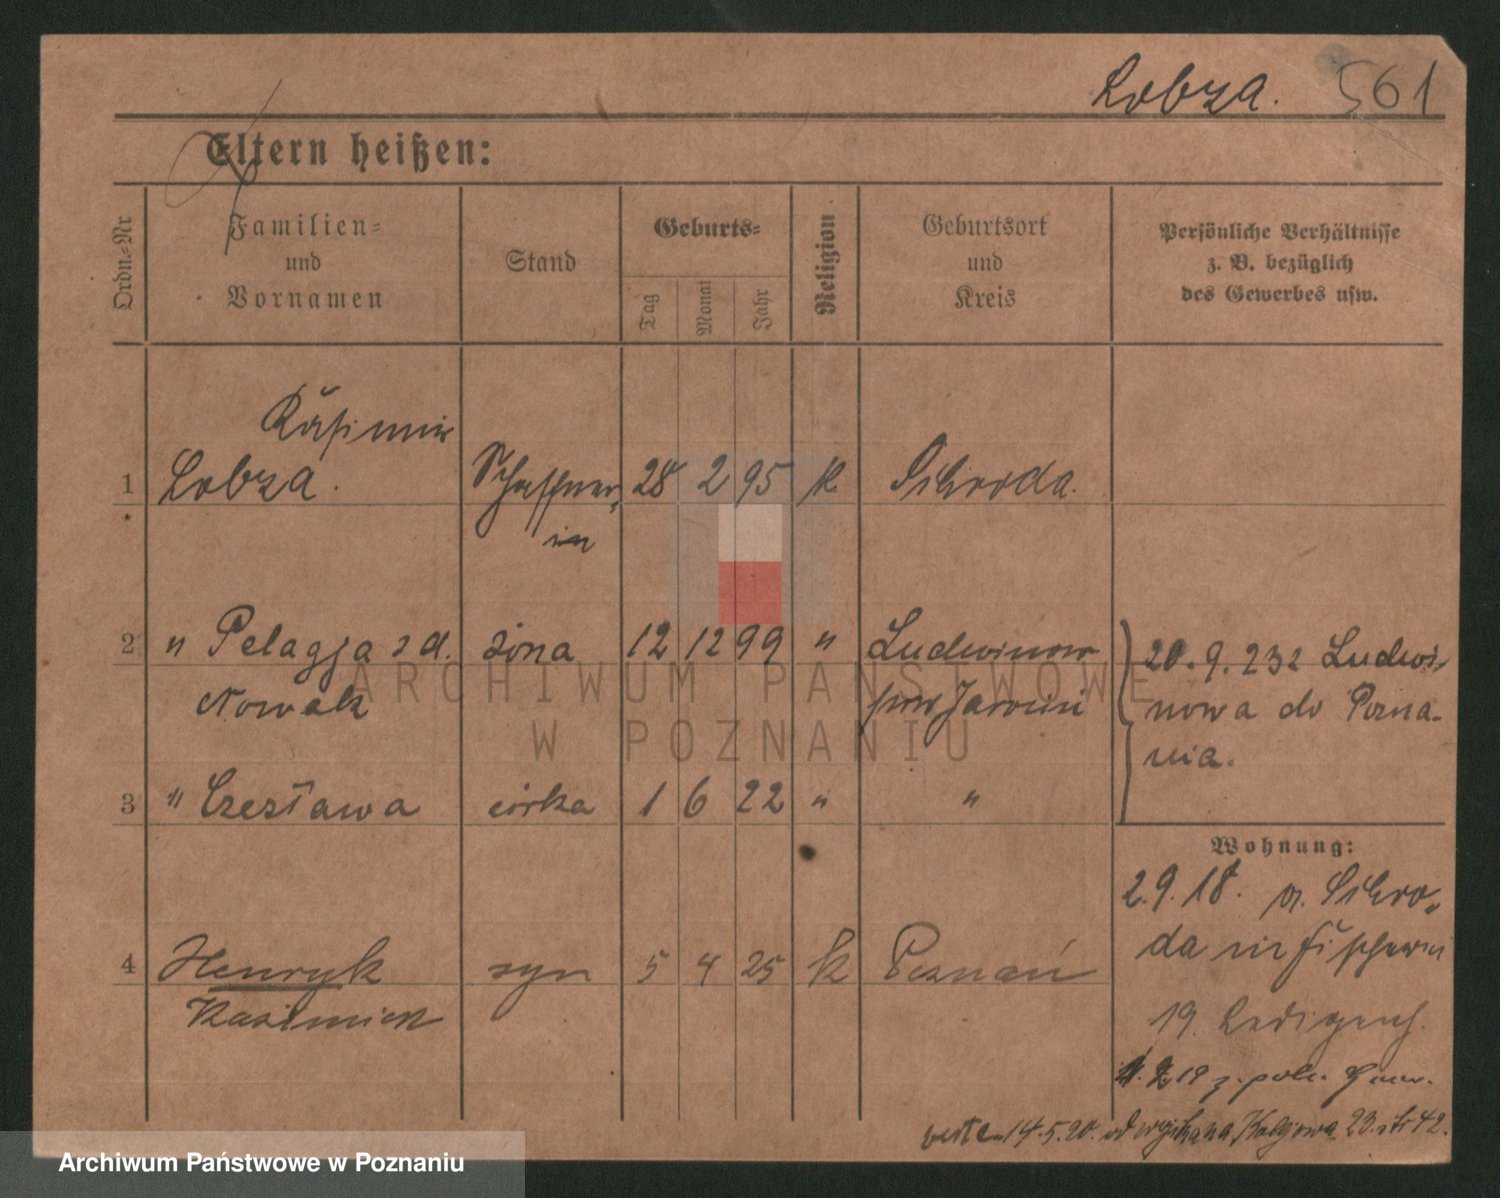 Lobza. 561
Eltern heißen:
Ordn.-Nr
Familien-
und
Vornamen
Stand
Geburts-
Tag
Monat
Jahr
Religion
Geburtsort
und
Kreis
Persönliche Verhältnisse
z. B. bezüglich
des Gewerbes usw.
Kasimir
1 Lobza. Schaffner 28 2 95 k Schroda.
in
2 " Pelagja z d. żona 12 12 99 " Ludwinow
Nowak pow Jarocin
20.9.23 z Ludwi-
nowa do Pozna-
nia.
3 " Czesława córka 1 6 22 " "
Wohnung:
2.9.18. Schro-
da
4 Henryk syn 5 4 25 k Poznań
Kasimierz
19.
19 z. poln.
14.5.20. 23. 42.
ARCHIWUM PAŃSTWOWE
W POZNANIU
Archiwum Państwowe w Poznaniu